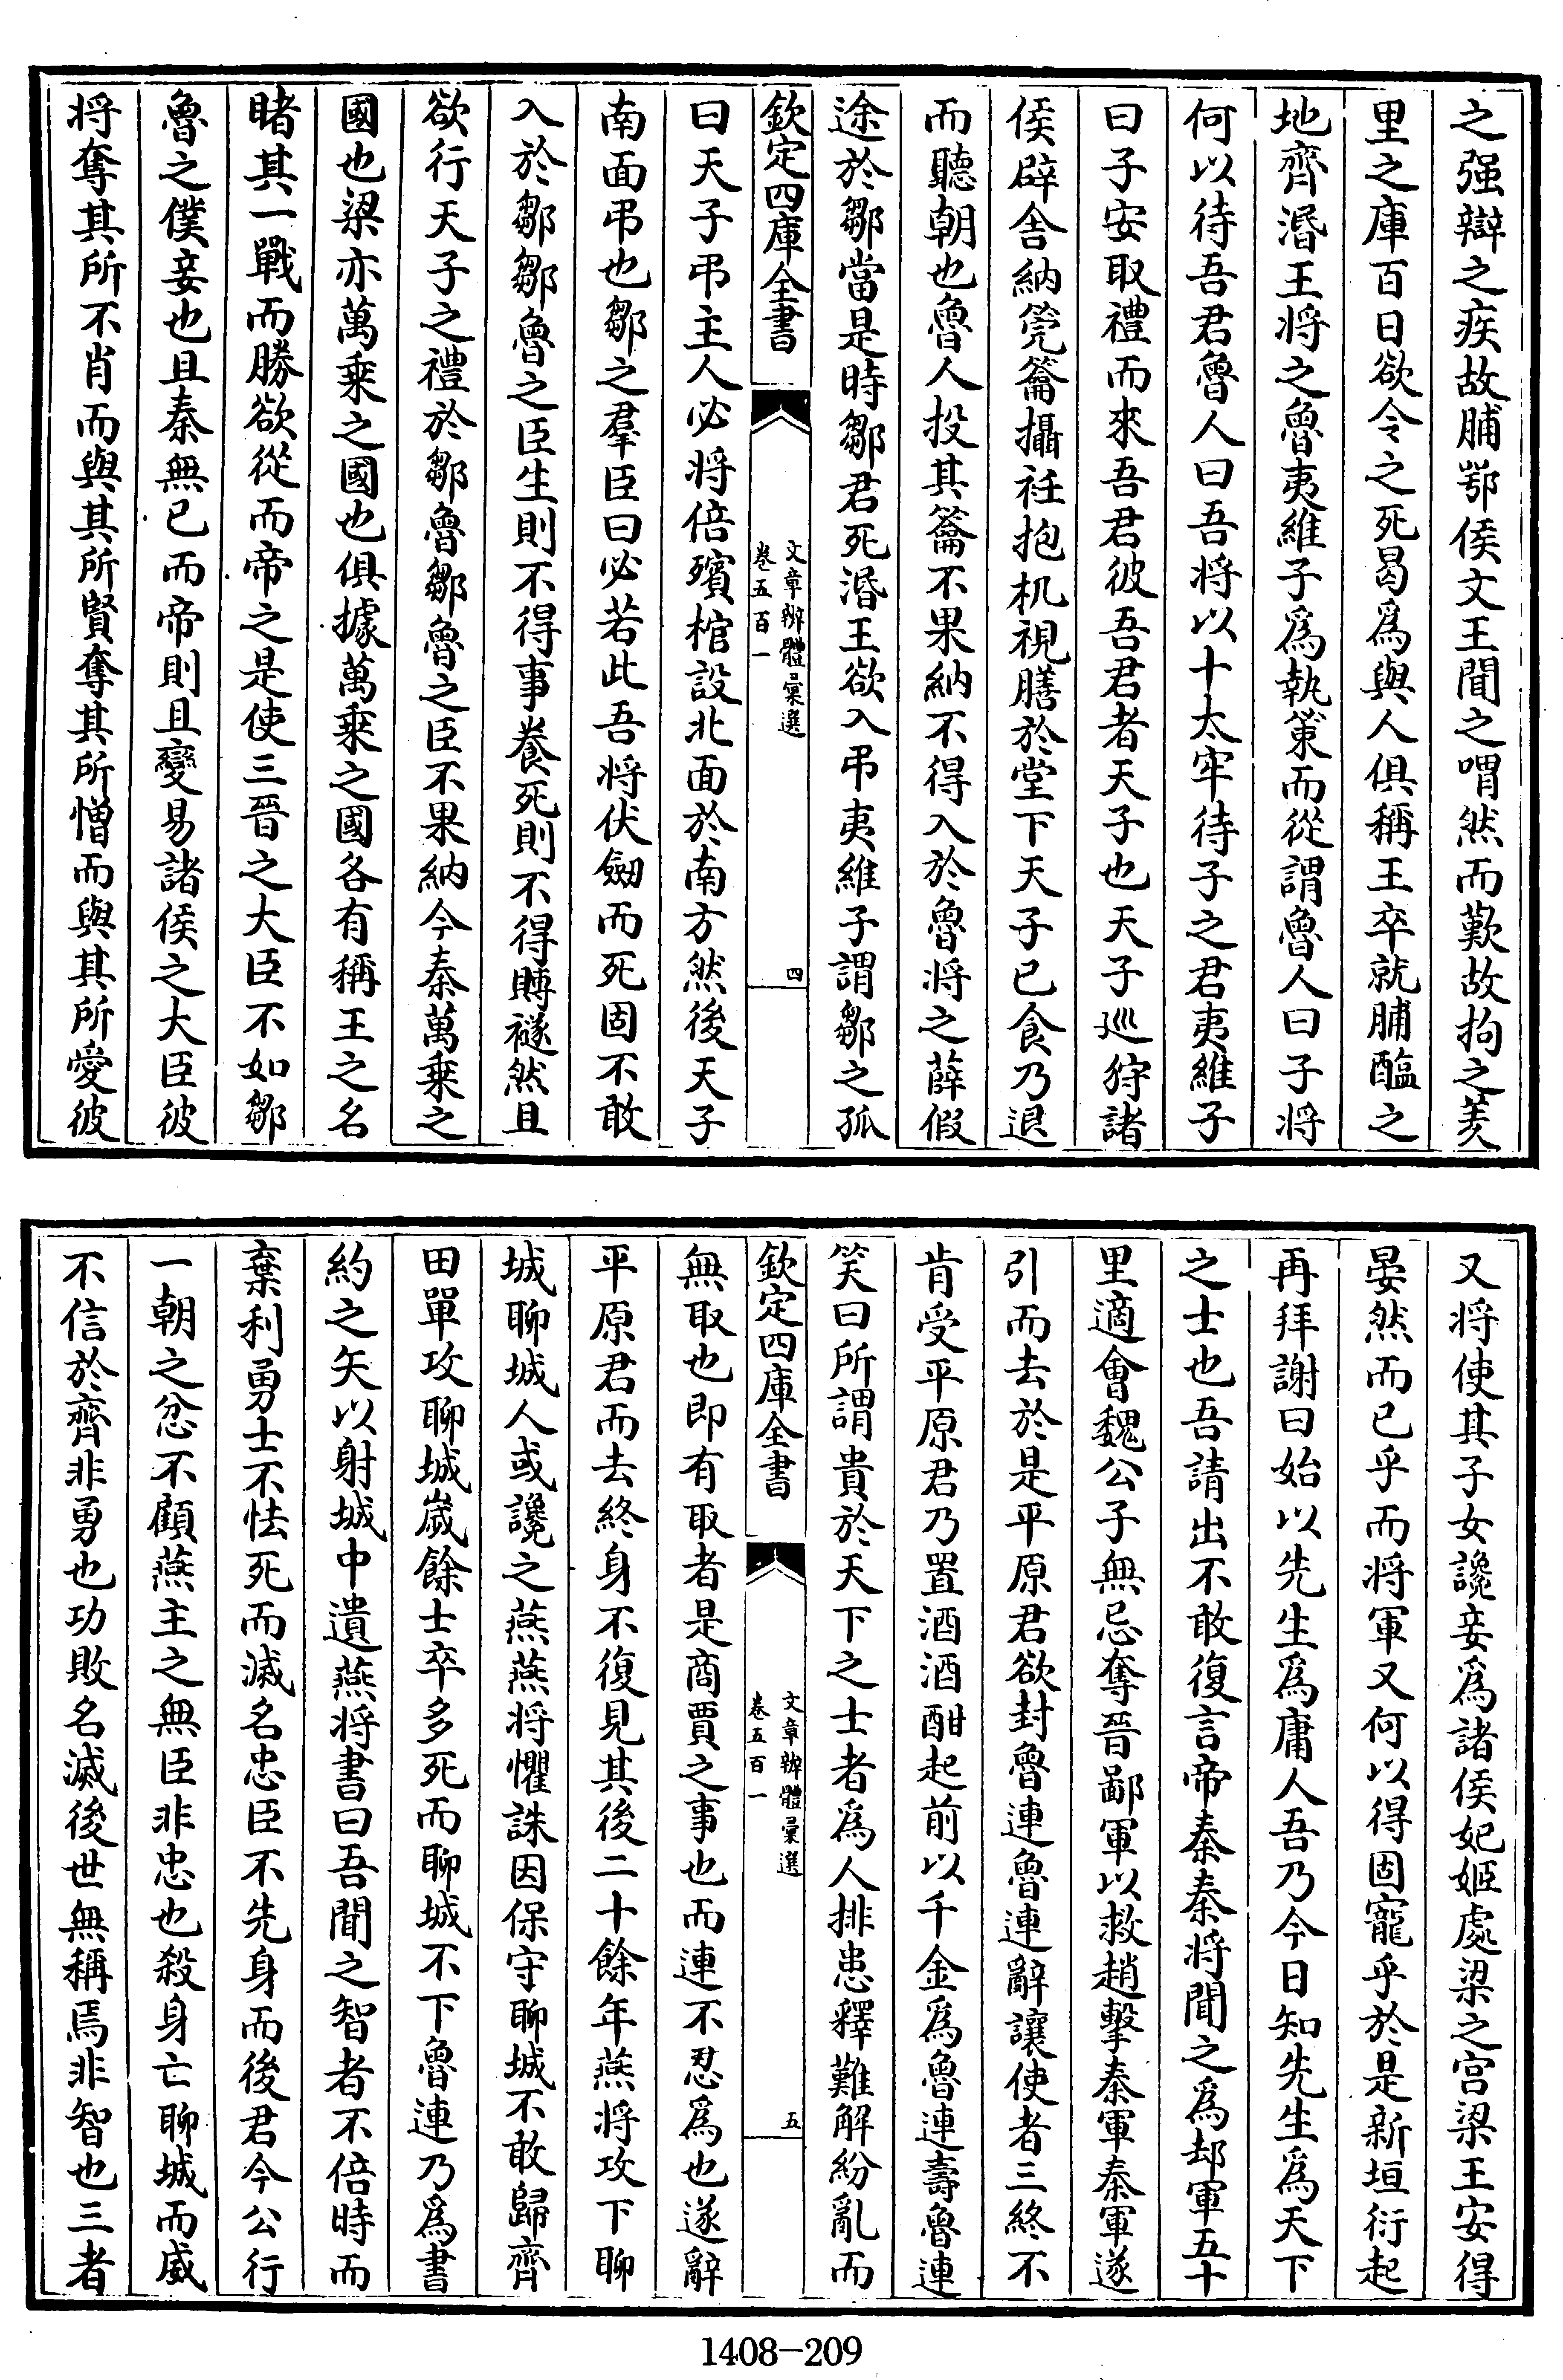 之强辯之疾故脯鄂侯文王聞之喟然而歎故拘之羑
里之庫百日欲令之死曷爲與人俱稱王卒就脯醢之
地齊湣王將之魯夷維子爲執策而從謂魯人曰子將
何以待吾君魯人曰吾將以十太牢待子之君夷維子
曰子安取禮而來吾君彼吾君者天子也天子巡狩諸
侯辟舎納筦籥攝衽抱机視膳於堂下天子已食乃退
而聽朝也魯人投其籥不果納不得入於魯將之薛假
途於鄒當是時鄒君死湣王欲入弔夷維子謂鄒之孤
欽定四庫全書
文章辨體彚選
卷五百一
四
曰天子弔主人必將倍殯棺設北面於南方然後天子
南面弔也鄒之羣臣曰必若此吾將伏劒而死固不敢
入於鄒鄒魯之臣生則不得事養死則不得賻襚然且
欲行天子之禮於鄒魯鄒魯之臣不果納今秦萬乗之
國也梁亦萬乗之國也俱據萬乗之國各有稱王之名
睹其一戰而勝欲從而帝之是使三晉之大臣不如鄒
魯之僕妾也且秦無已而帝則且變易諸侯之大臣彼
將奪其所不肖而與其所賢奪其所憎而與其所愛彼
又將使其子女讒妾爲諸侯妃姬處梁之宫梁王安得
晏然而已乎而將軍又何以得固寵乎於是新垣衍起
再拜謝曰始以先生爲庸人吾乃今日知先生爲天下
之士也吾請出不敢復言帝秦秦將聞之爲却軍五十
里適會魏公子無忌奪晉鄙軍以救趙擊秦軍秦軍遂
引而去於是平原君欲封魯連魯連辭讓使者三終不
肯受平原君乃置酒酒酣起前以千金爲魯連壽魯連
笑曰所謂貴於天下之士者爲人排患釋難解紛亂而
欽定四庫全書
文章辨體彚選
卷五百一
五
無取也即有取者是商賈之事也而連不忍爲也遂辭
平原君而去終身不復見其後二十餘年燕將攻下聊
城聊城人或讒之燕燕將懼誅因保守聊城不敢歸齊
田單攻聊城嵗餘士卒多死而聊城不下魯連乃爲書
約之矢以射城中遺燕將書曰吾聞之智者不倍時而
棄利勇士不怯死而滅名忠臣不先身而後君今公行
一朝之忿不顧燕主之無臣非忠也殺身亡聊城而威
不信於齊非勇也功敗名滅後世無稱焉非智也三者
1408-209